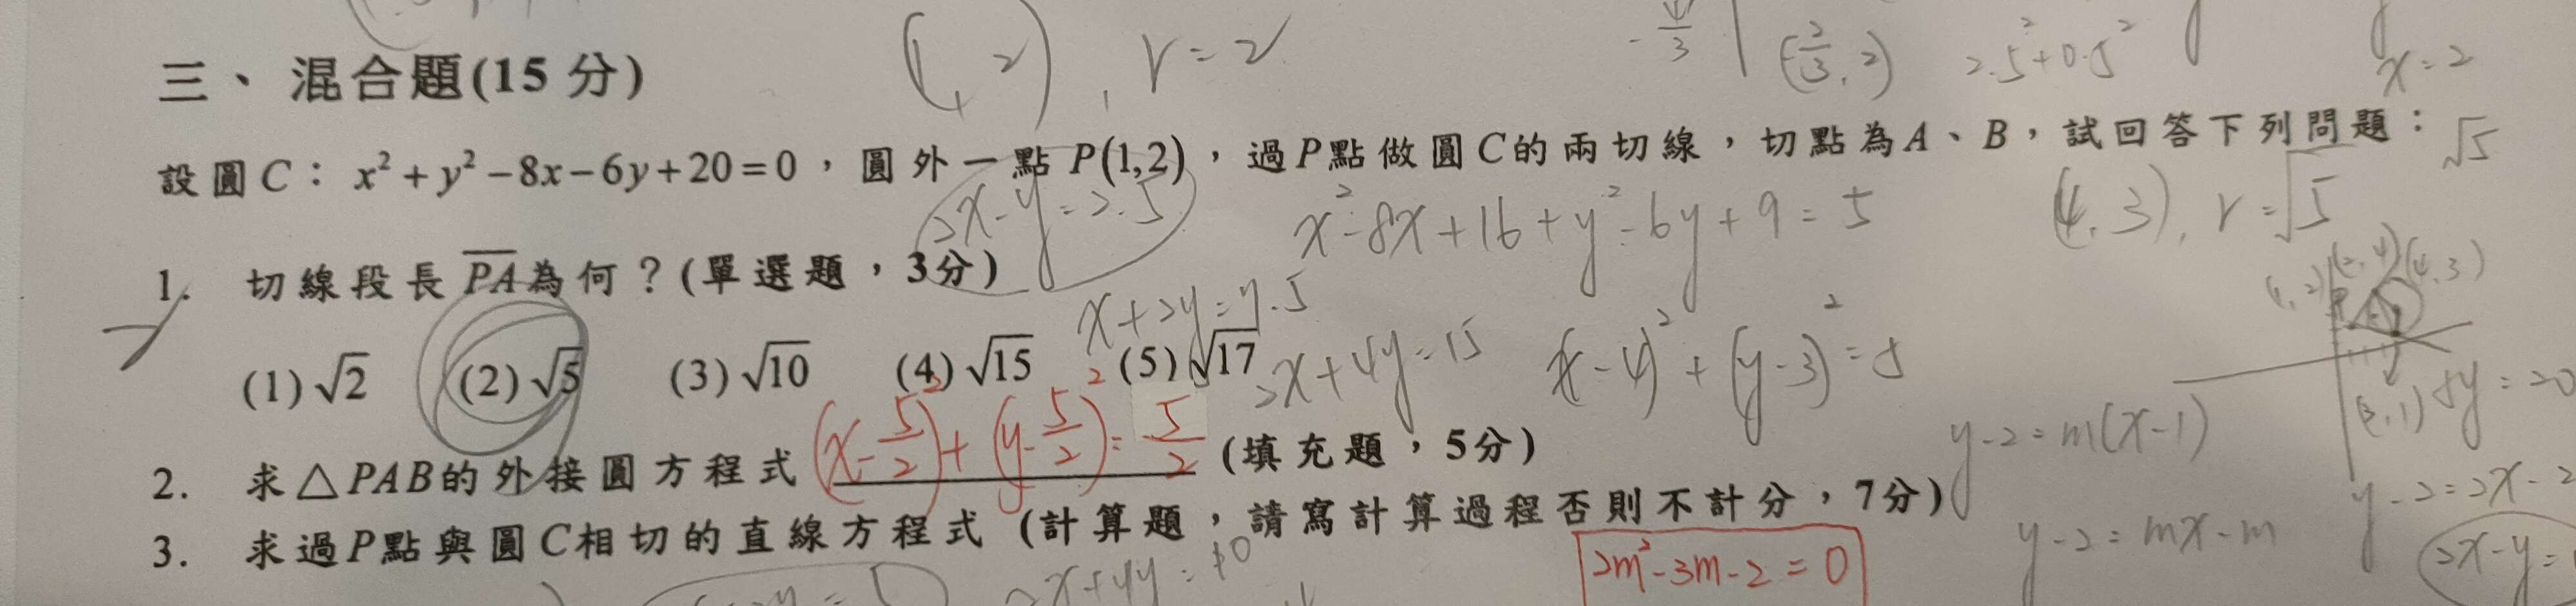 (1, 2), r=2
三、混合題(15分)
-4/3
(2/3, 2)
2.5²+0.5²
x=2
設圓C：x²+y²−8x−6y+20=0，圓外一點P(1,2)，過P點做圓C的兩切線，切點為A、B，試回答下列問題：
√5
2x-y=2.5
x²-8x+16+y²-6y+9=5
(4, 3), r=√5
1. 切線段長PA為何？(單選題，3分)
x+2y=7.5
(2,4) (4,3)
(1,2)
(1)√2 (2)√5 (3)√10 (4)√15 (5)√17
2x+4y=15
(x-4)²+(y-3)²=5
(3,1)
2. 求△PAB的外接圓方程式 (x-5/2)²+(y-5/2)²=5/2 (填充題，5分)
y-2=m(x-1)
3. 求過P點與圓C相切的直線方程式 (計算題，請寫計算過程否則不計分，7分)
y-2=2x-2
y-2=mx-m
2m²-3m-2=0
2x+4y=10
2x-y=